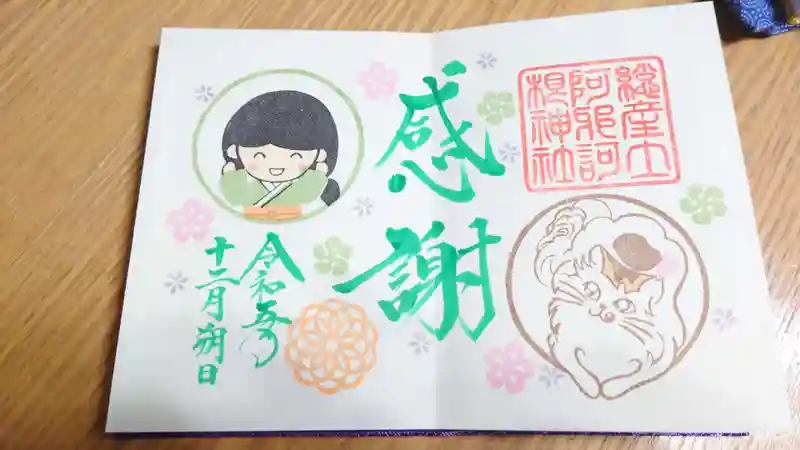 総産土
阿邪訶
根神社
感謝
令和五年
十二月朔日